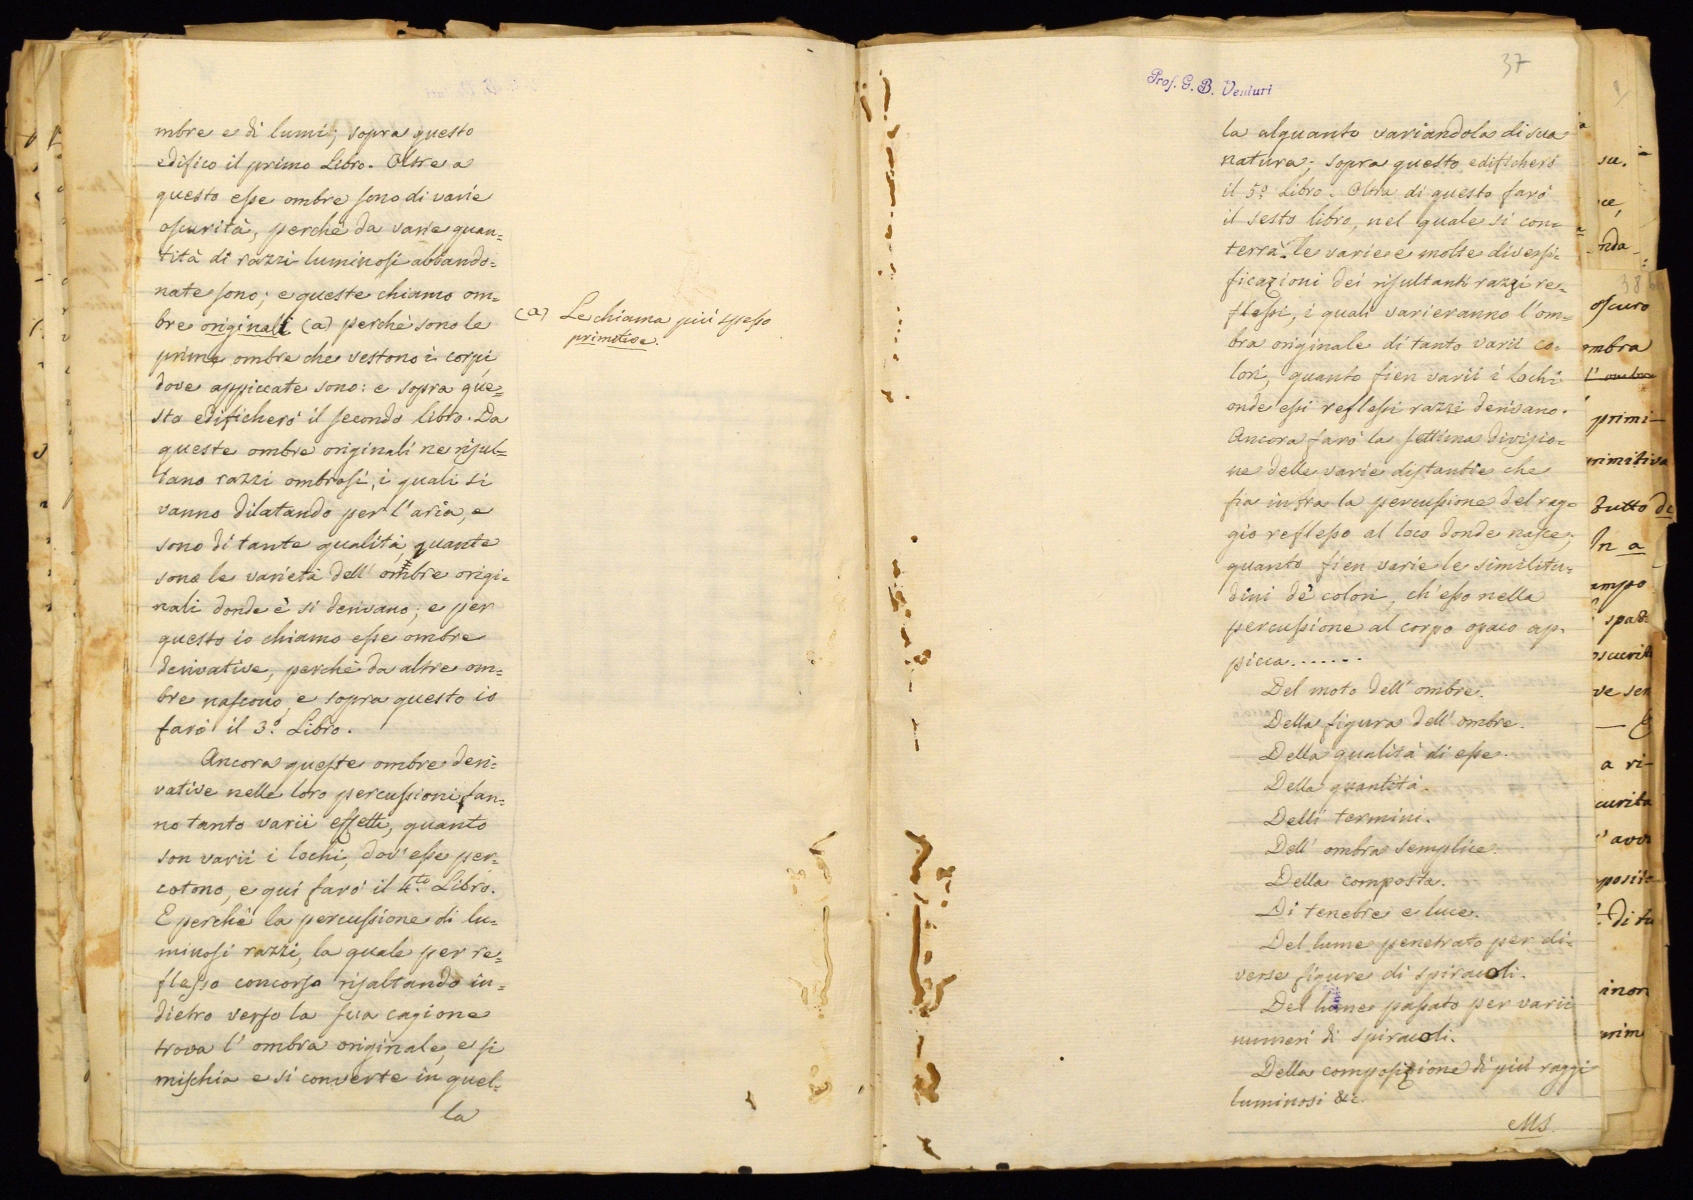 mbre e di lumi; sopra questo
edifico il primo Libro. Oltre a
questo esse ombre sono di varie
oscurità, perchè da varie quan=
tità di razzi luminosi abbando=
nate sono; e queste chiamo om=
bre originali (a) perchè sono le
prime ombre che vestono i corpi
dove appiccate sono: e sopra que=
sto edificherò il secondo libro. Da
queste ombre originali ne risul=
tano razzi ombrosi, i quali si
vanno dilatando per l'aria, e
sono di tante qualità, quante
sono le varietà dell'ombre origi=
nali donde è si derivano; e per
questo io chiamo esse ombre
derivative, perchè da altre om=
bre nascono, e sopra questo io
farò il 3.º Libro.
Ancora queste ombre deri=
vative nelle loro percussioni fan=
no tanto varii effetti, quanto
son varii i lochi, dov'esse per=
cotono, e qui farò il 4.to Libro.
E perchè la percussione di lu=
minosi razzi, la quale per re=
flesso concorso risaltando in=
dietro verso la sua cagione
trova l'ombra originale, e si
mischia e si converte in quel=
la
(a) Le chiama più spesso
primitive.
Prof. G. B. Venturi
37
la alquanto variandola di sua
natura; sopra questo edificherò
il 5.º Libro. Oltra di questo farò
il sesto libro, nel quale si con=
terrà le varie e molte diversi=
ficazioni dei risultanti razzi re=
flessi, i quali varieranno l'om=
bra originale di tanto varii co=
lori, quanto fien varii i lochi
onde essi reflessi razzi derivano.
Ancora farò la settima divisio=
ne delle varie distantie che
fia infra la percussione del rag=
gio reflesso al loco donde nasce;
quanto fien varie le similitu=
dini de' colori, ch'esso nella
percussione al corpo opaco ap=
picca.......
Del moto dell'ombre.
Della figura dell'ombre.
Della qualità di esse.
Della quantità.
Delli termini.
Dell'ombra semplice.
Della composta.
Di tenebre e luce.
Del lume penetrato per di=
verse figure di spiracoli.
Del lume passato per varii
numeri di spiracoli.
Della composizione di più raggi
luminosi &c.
MS.
38
oscuro
ombra
primi-
primitiva
tutto di
In a
a ri-
Di tu